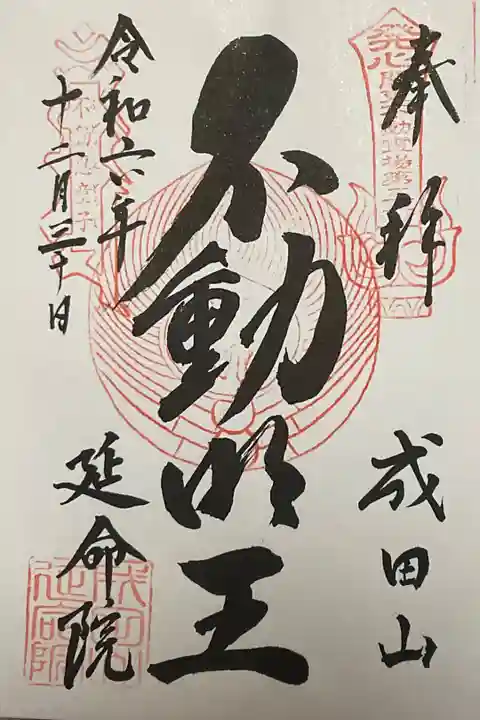 奉拝
成田山
不動明王
令和六年
十二月三十日
延命院